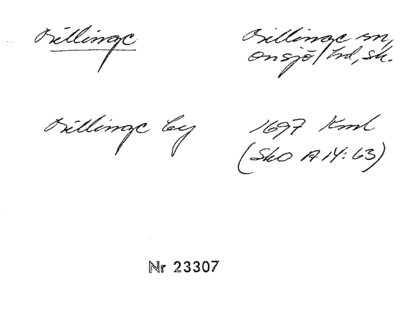 Billinge
Billinge sn,
Onsjö hd, Sk.
Billinge by
1697 Kml
(Sko A 14:63)
Nr 23307